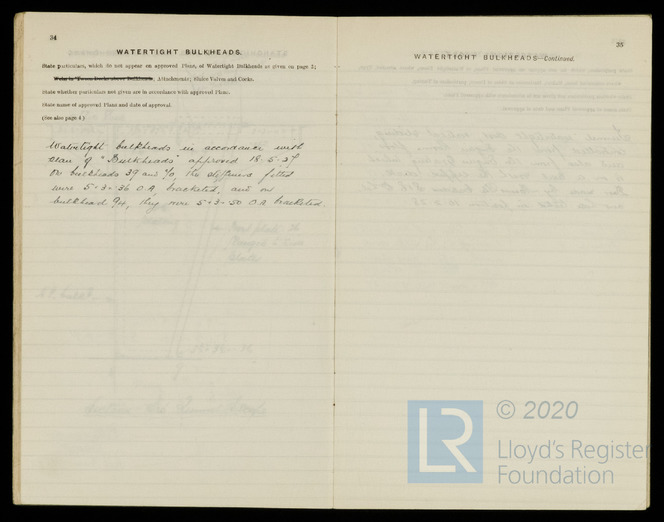 34
WATERTIGHT BULKHEADS.
State particulars, which do not appear on approved Plans, of Watertight Bulkheads as given on page 5;
Attachments; Sluice Valves and Cocks.
State whether particulars not given are in accordance with approved Plans.
State name of approved Plans and date of approval.
(See also page 4.)
Watertight bulkheads in accordance with
plan of "Bulkheads" approved 18.5.27
On bulkheads 39 and 70, the stiffeners fitted
were 5·3·36 O.A. bracketed, and on
bulkhead 94, they were 5·3·50 O.A. bracketed.
35
WATERTIGHT BULKHEADS—Continued.
LR
© 2020
Lloyd's Register
Foundation